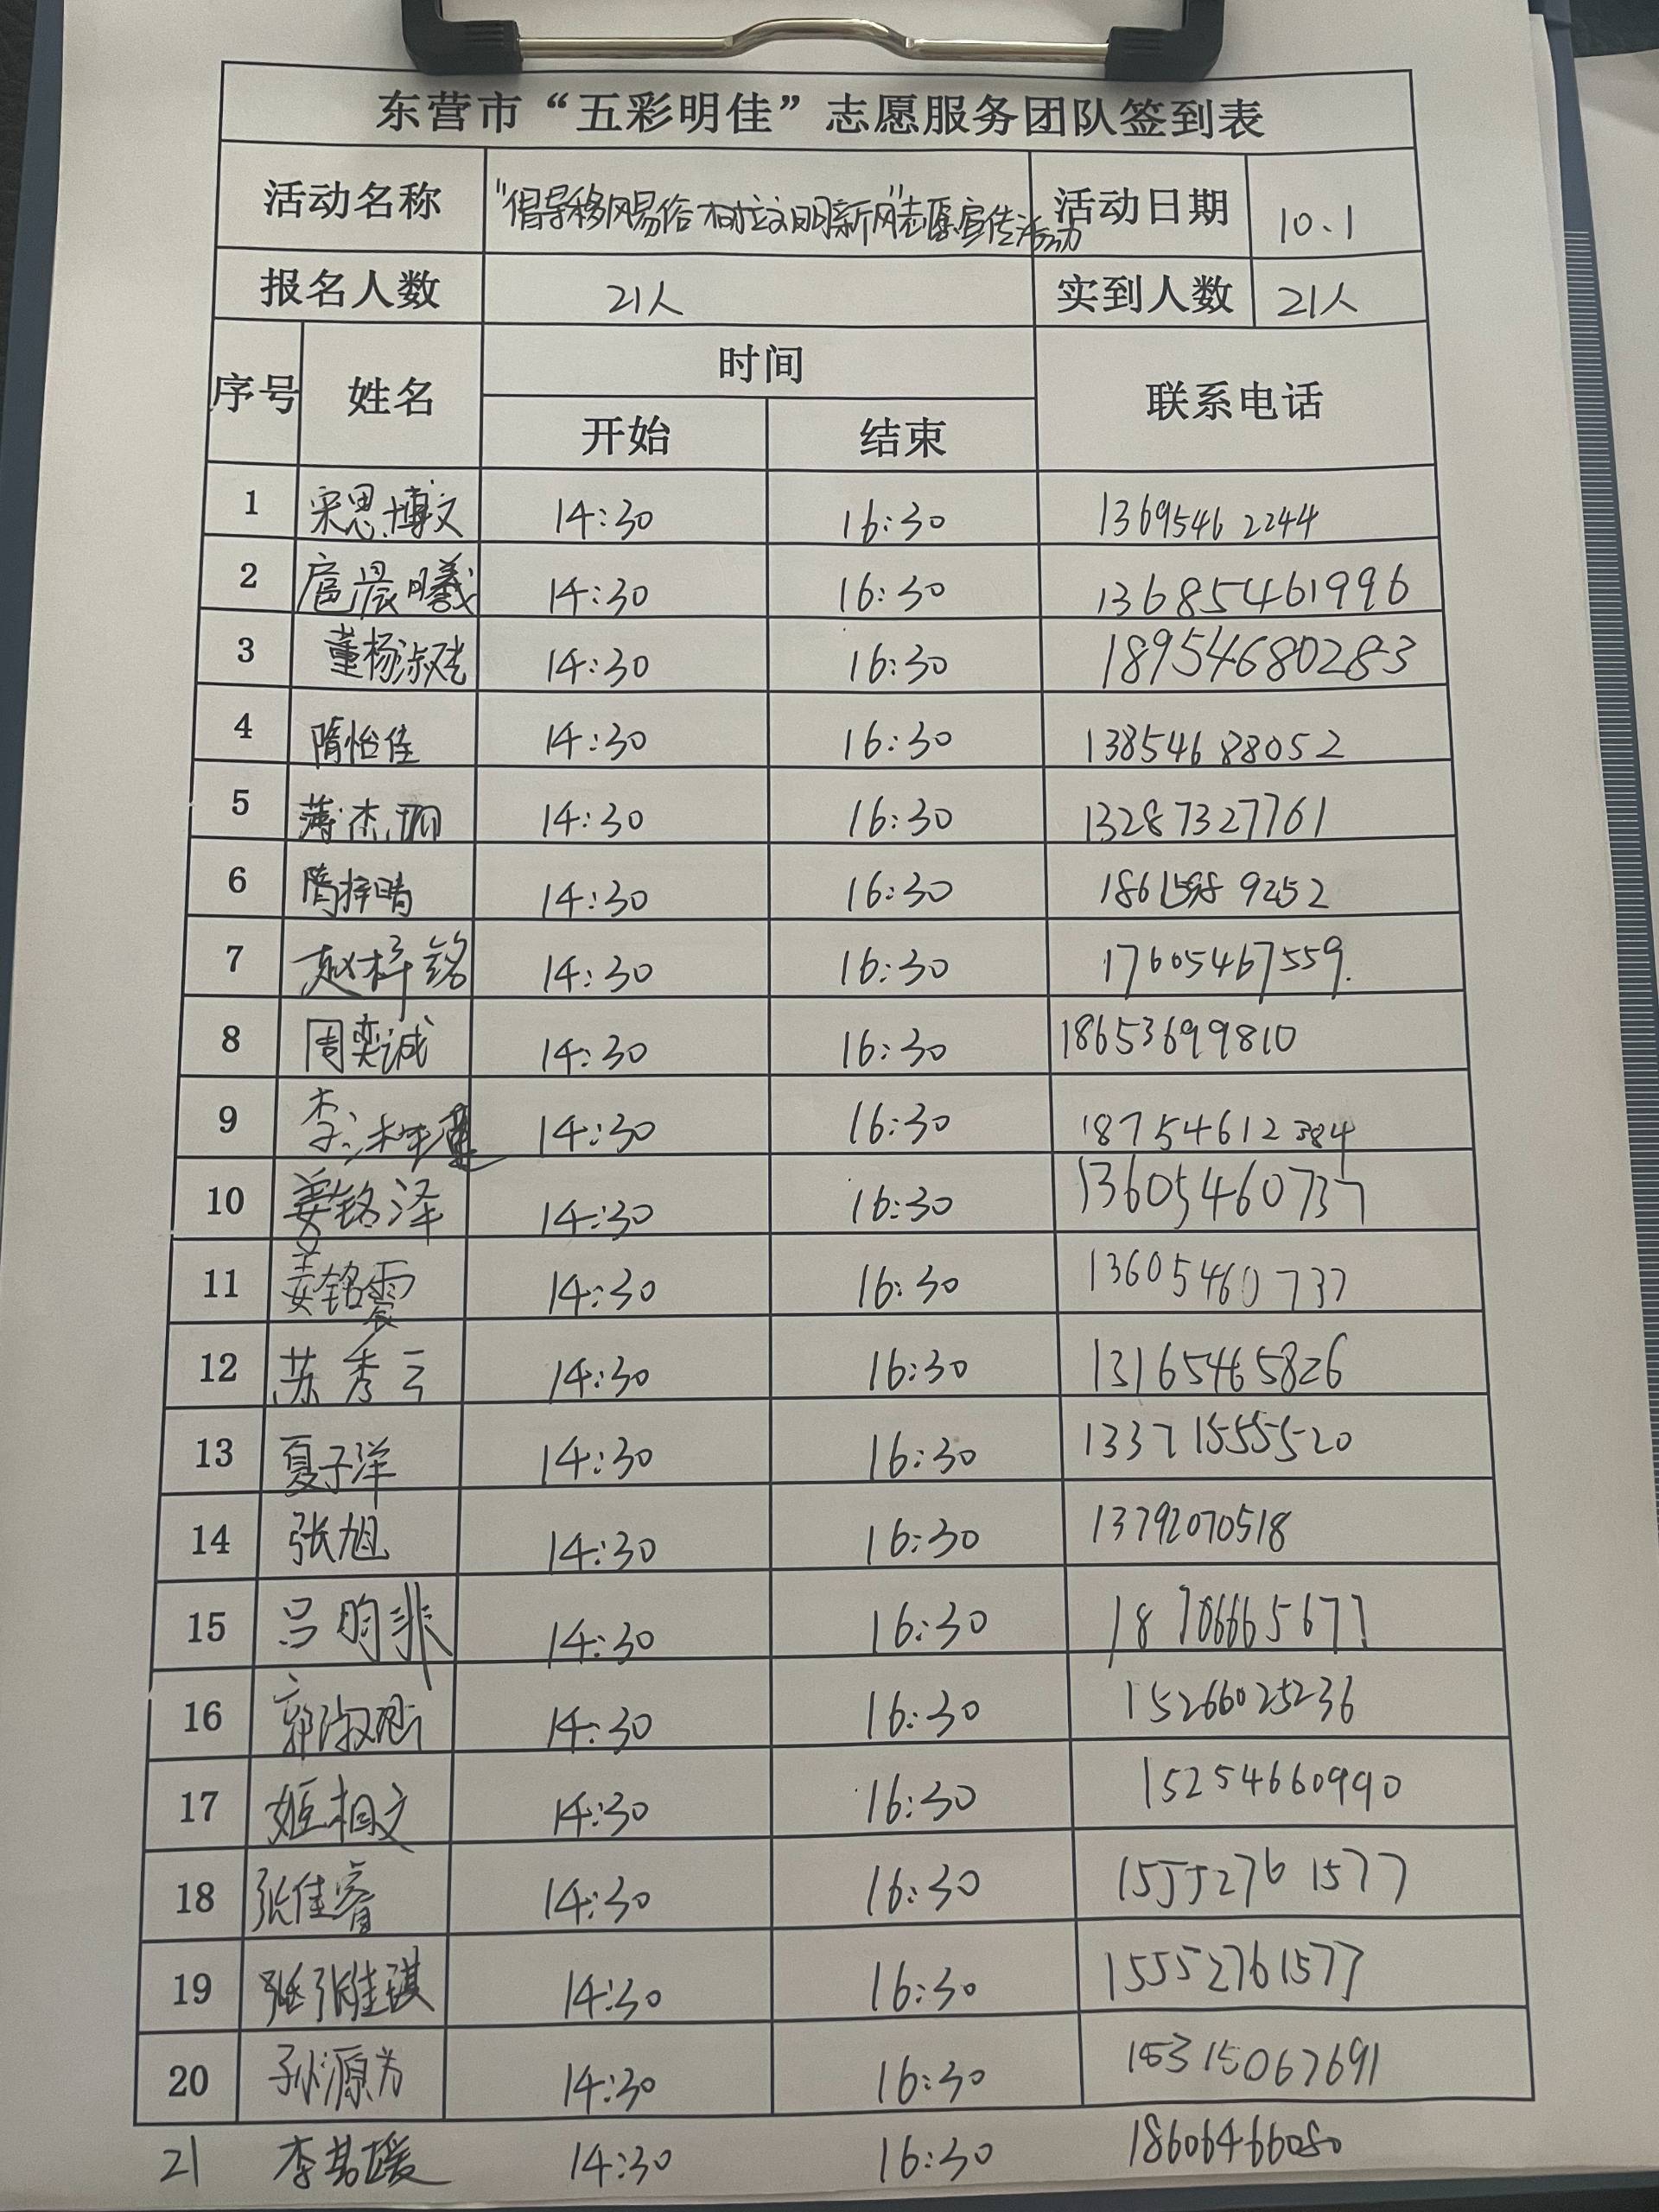 东营市“五彩明佳”志愿服务团队签到表
活动名称 “倡导移风易俗 树立文明新风”志愿宣传活动 活动日期 10.1
报名人数 21人 实到人数 21人
序号 姓名 时间 联系电话
开始 结束
1 宋思博文 14:30 16:30 13695462244
2 扈晨曦 14:30 16:30 13685461996
3 董杨淑 14:30 16:30 18954680283
4 隋怡佳 14:30 16:30 13854688052
5 薄杰珊 14:30 16:30 13287327761
6 隋梓晴 14:30 16:30 18615989252
7 赵梓铭 14:30 16:30 17605467559.
8 周奕诚 14:30 16:30 18653699810
9 李 14:30 16:30 18754612384
10 姜铭泽 14:30 16:30 13605460737
11 姜铭震 14:30 16:30 13605460737
12 苏秀云 14:30 16:30 13165465826
13 夏子洋 14:30 16:30 13371555520
14 张旭 14:30 16:30 13792070518
15 吕明非 14:30 16:30 18706665677
16 郭淑 14:30 16:30 15266025236
17 姬相文 14:30 16:30 15254660990
18 张佳睿 14:30 16:30 15552761577
19 张佳琪 14:30 16:30 15552761577
20 孙源为 14:30 16:30 15315067691
21 李茗媛 14:30 16:30 18606466080